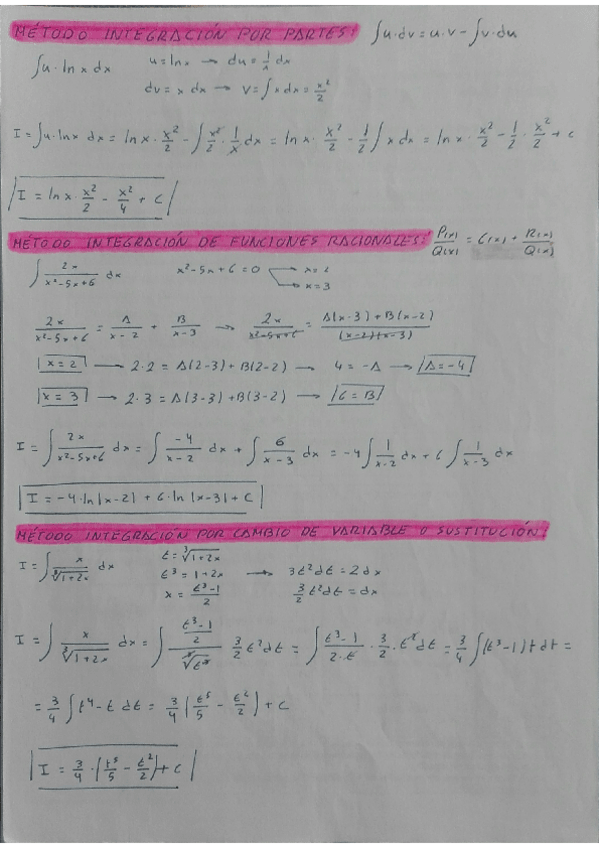 MÉTODO INTEGRACIÓN POR PARTES: ∫u·dv = u·v - ∫v·du
∫u·ln x dx u = ln x → du = 1/x dx
dv = x dx → v = ∫x dx = x²/2
I = ∫u·ln x dx = ln x · x²/2 - ∫x²/2 · 1/x dx = ln x · x²/2 - 1/2 ∫x dx = ln x · x²/2 - 1/2 · x²/2 + C
I = ln x · x²/2 - x²/4 + C
MÉTODO INTEGRACIÓN DE FUNCIONES RACIONALES: P(x)/Q(x) = C(x) + R(x)/Q(x)
∫ 2x/(x²-5x+6) dx x²-5x+6=0 → x=2
→ x=3
2x/(x²-5x+6) = A/(x-2) + B/(x-3) → 2x/(x²-5x+6) = (A(x-3)+B(x-2))/((x-2)(x-3))
x=2 → 2·2 = A(2-3)+B(2-2) → 4=-A → A=-4
x=3 → 2·3 = A(3-3)+B(3-2) → 6=B
I = ∫ 2x/(x²-5x+6) dx = ∫ -4/(x-2) dx + ∫ 6/(x-3) dx = -4∫ 1/(x-2) dx + 6∫ 1/(x-3) dx
I = -4·ln|x-2| + 6·ln|x-3| + C
MÉTODO INTEGRACIÓN POR CAMBIO DE VARIABLE O SUSTITUCIÓN:
I = ∫ x/∛(1+2x) dx t = ∛(1+2x)
t³ = 1+2x → 3t²dt = 2dx
x = (t³-1)/2 3/2 t²dt = dx
I = ∫ x/∛(1+2x) dx = ∫ ((t³-1)/2)/∛(t³) 3/2 t²dt = ∫ (t³-1)/(2·t) · 3/2 · t² dt = 3/4 ∫(t³-1)t dt =
= 3/4 ∫ t⁴-t dt = 3/4 (t⁵/5 - t²/2) + C
I = 3/4 · (t⁵/5 - t²/2) + C